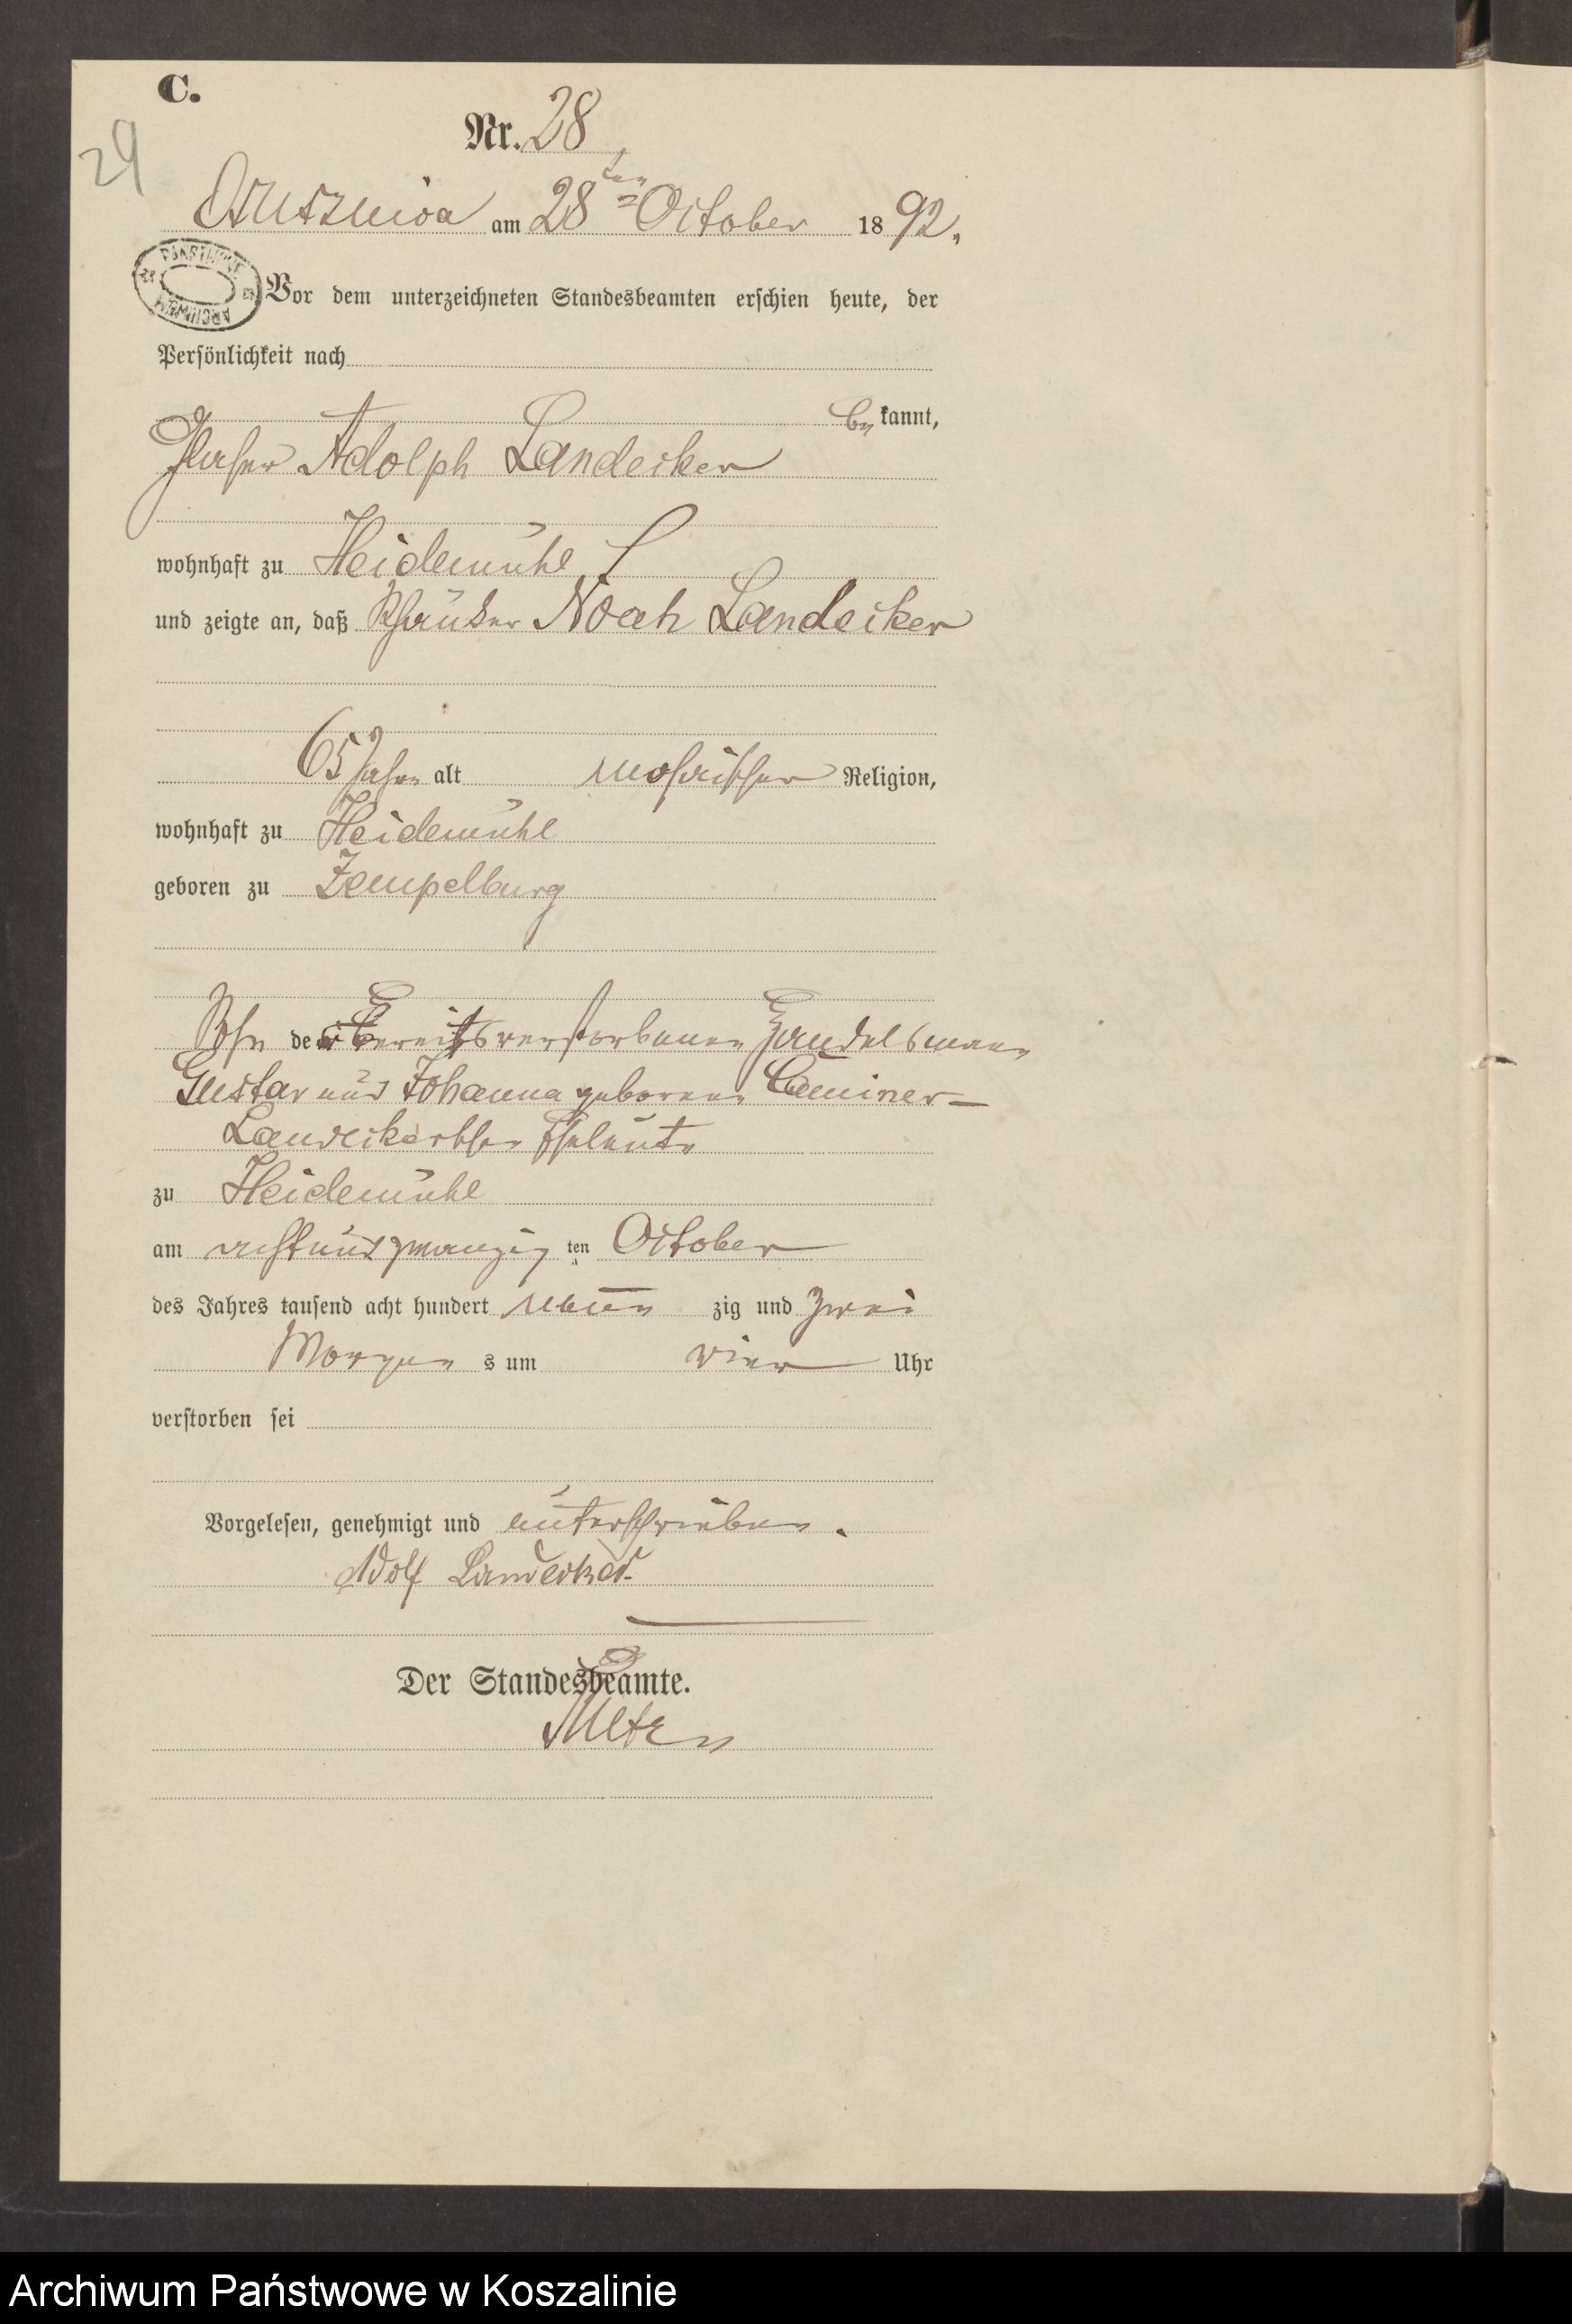 C.
29
Nr. 28
am 28ten October 1892.
PANSTWOWE ARCHIWUM
Vor dem unterzeichneten Standesbeamten erschien heute, der
Persönlichkeit nach
be kannt,
Glaser Adolph Landecker
wohnhaft zu Heidemühl
und zeigte an, daß Noah Landecker
65 Jahre alt mosaischer Religion,
wohnhaft zu Heidemühl
geboren zu Zempelburg
Sohn der bereits verstorbenen Handelsmann
Gustav und Johanna geborene Caminer-
Landeckerschen Eheleute
zu Heidemühl
am achtundzwanzig ten October
des Jahres tausend acht hundert neun zig und zwei
Morgen s um vier Uhr
verstorben sei
Vorgelesen, genehmigt und unterschrieben.
Adolf Landecker
Der Standesbeamte.
Archiwum Państwowe w Koszalinie